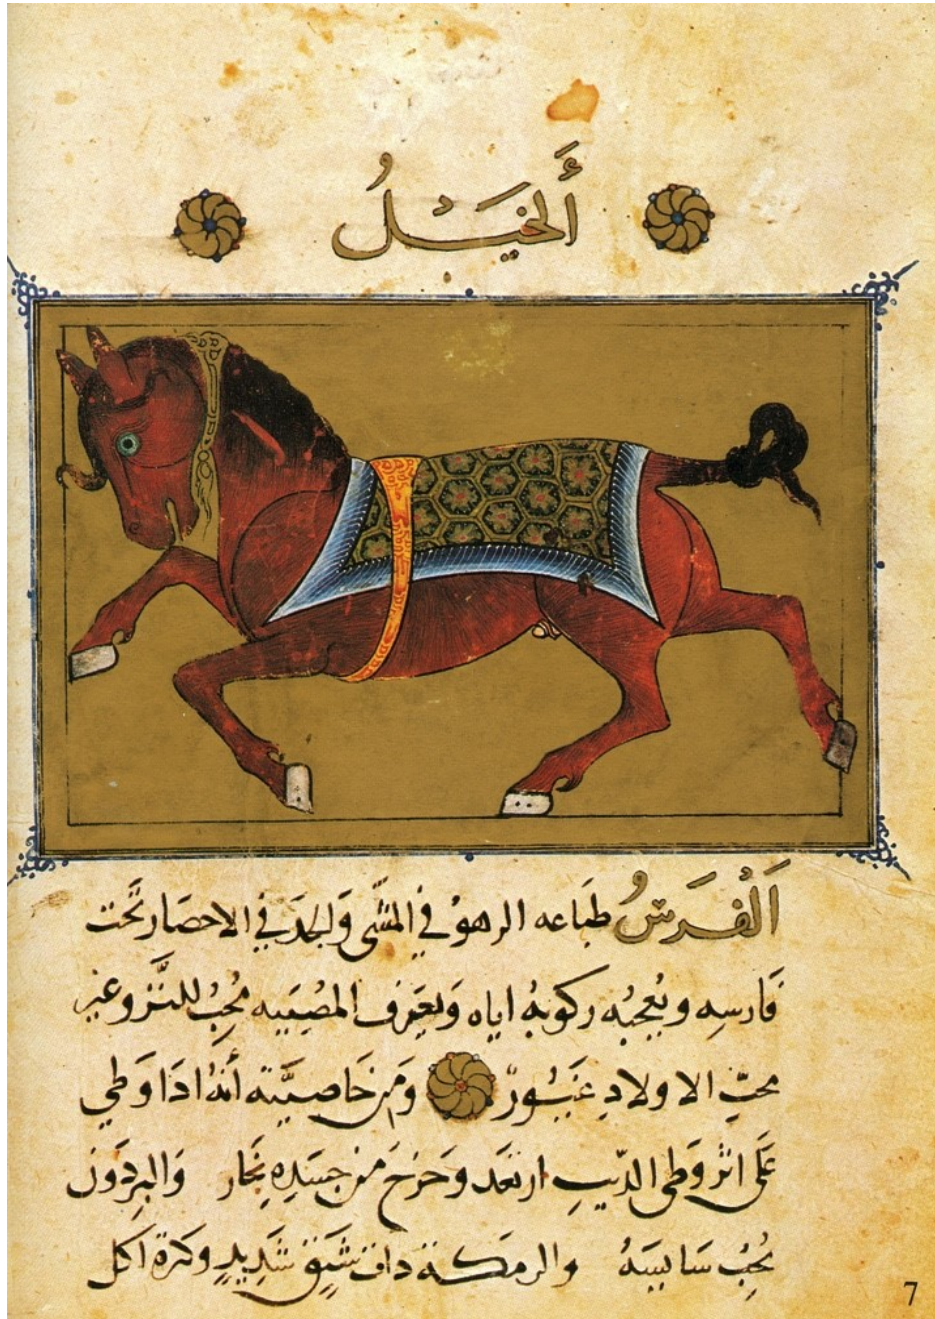 أَلخَيْلُ
اَلْفَرَسُ طبَاعه الرهوُ في المشَى وَالجدَ في الاحصَار تَحت
فَارسِه ويُعجبُه ركوبهُ اياه وَيعَرف المصُيبَه مُحِبُ للنَّزو غير
محبّ الاولادِ غَيُورٌ وَمن خَاصيَّته أنهُ اذَا وَطي
عَلى اثر وَطى الديبِ ارتعَد وَخَرَج من جسَدِهِ بخَار وَالبِردَون
يُحِبُ سَايسَهُ والرمَكَة دات شَبَقٍ شَدِيدٍ وكثرة اكل
7